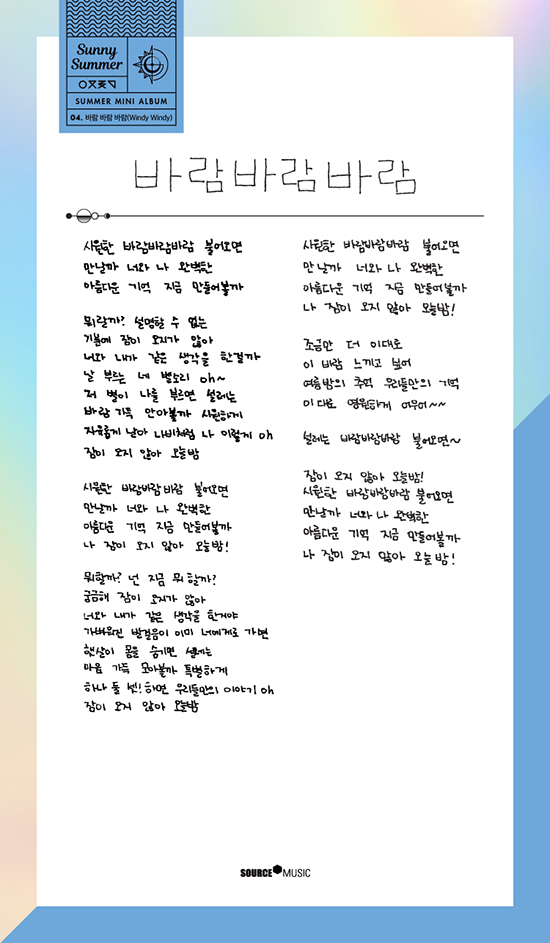 Sunny
Summer
SUMMER MINI ALBUM
04. 바람 바람 바람(Windy Windy)
바람바람바람
시원한 바람바람바람 불어오면
만날까 너와 나 완벽한
아름다운 기억 지금 만들어볼까
뭐랄까? 설명할 수 없는
기분에 잠이 오지가 않아
너와 내가 같은 생각을 한걸까
날 부르는 네 목소리 oh~
저 별이 나를 부르면 설레는
바람 가득 안아볼까 시원하게
자유롭게 날아 나비처럼 나 이렇게 oh
잠이 오지 않아 오늘밤
시원한 바람바람바람 불어오면
만날까 너와 나 완벽한
아름다운 기억 지금 만들어볼까
나 잠이 오지 않아 오늘밤!
뭐할까? 넌 지금 뭐 할까?
궁금해 잠이 오지가 않아
너와 내가 같은 생각을 한거야
가벼워진 발걸음이 이미 너에게로 가면
햇살이 몸을 숨기면 설레는
마음 가득 모아볼까 특별하게
하나 둘 셋! 하면 우리들만의 이야기 oh
잠이 오지 않아 오늘밤
시원한 바람바람바람 불어오면
만날까 너와 나 완벽한
아름다운 기억 지금 만들어볼까
나 잠이 오지 않아 오늘밤!
조금만 더 이대로
이 바람 느끼고 싶어
여름밤의 추억 우리들만의 기억
이대로 영원하게 여우어~~
설레는 바람바람바람 불어오면~
잠이 오지 않아 오늘밤!
시원한 바람바람바람 불어오면
만날까 너와 나 완벽한
아름다운 기억 지금 만들어볼까
나 잠이 오지 않아 오늘밤!
SOURCE MUSIC